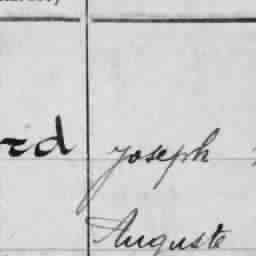 rd Joseph
Auguste